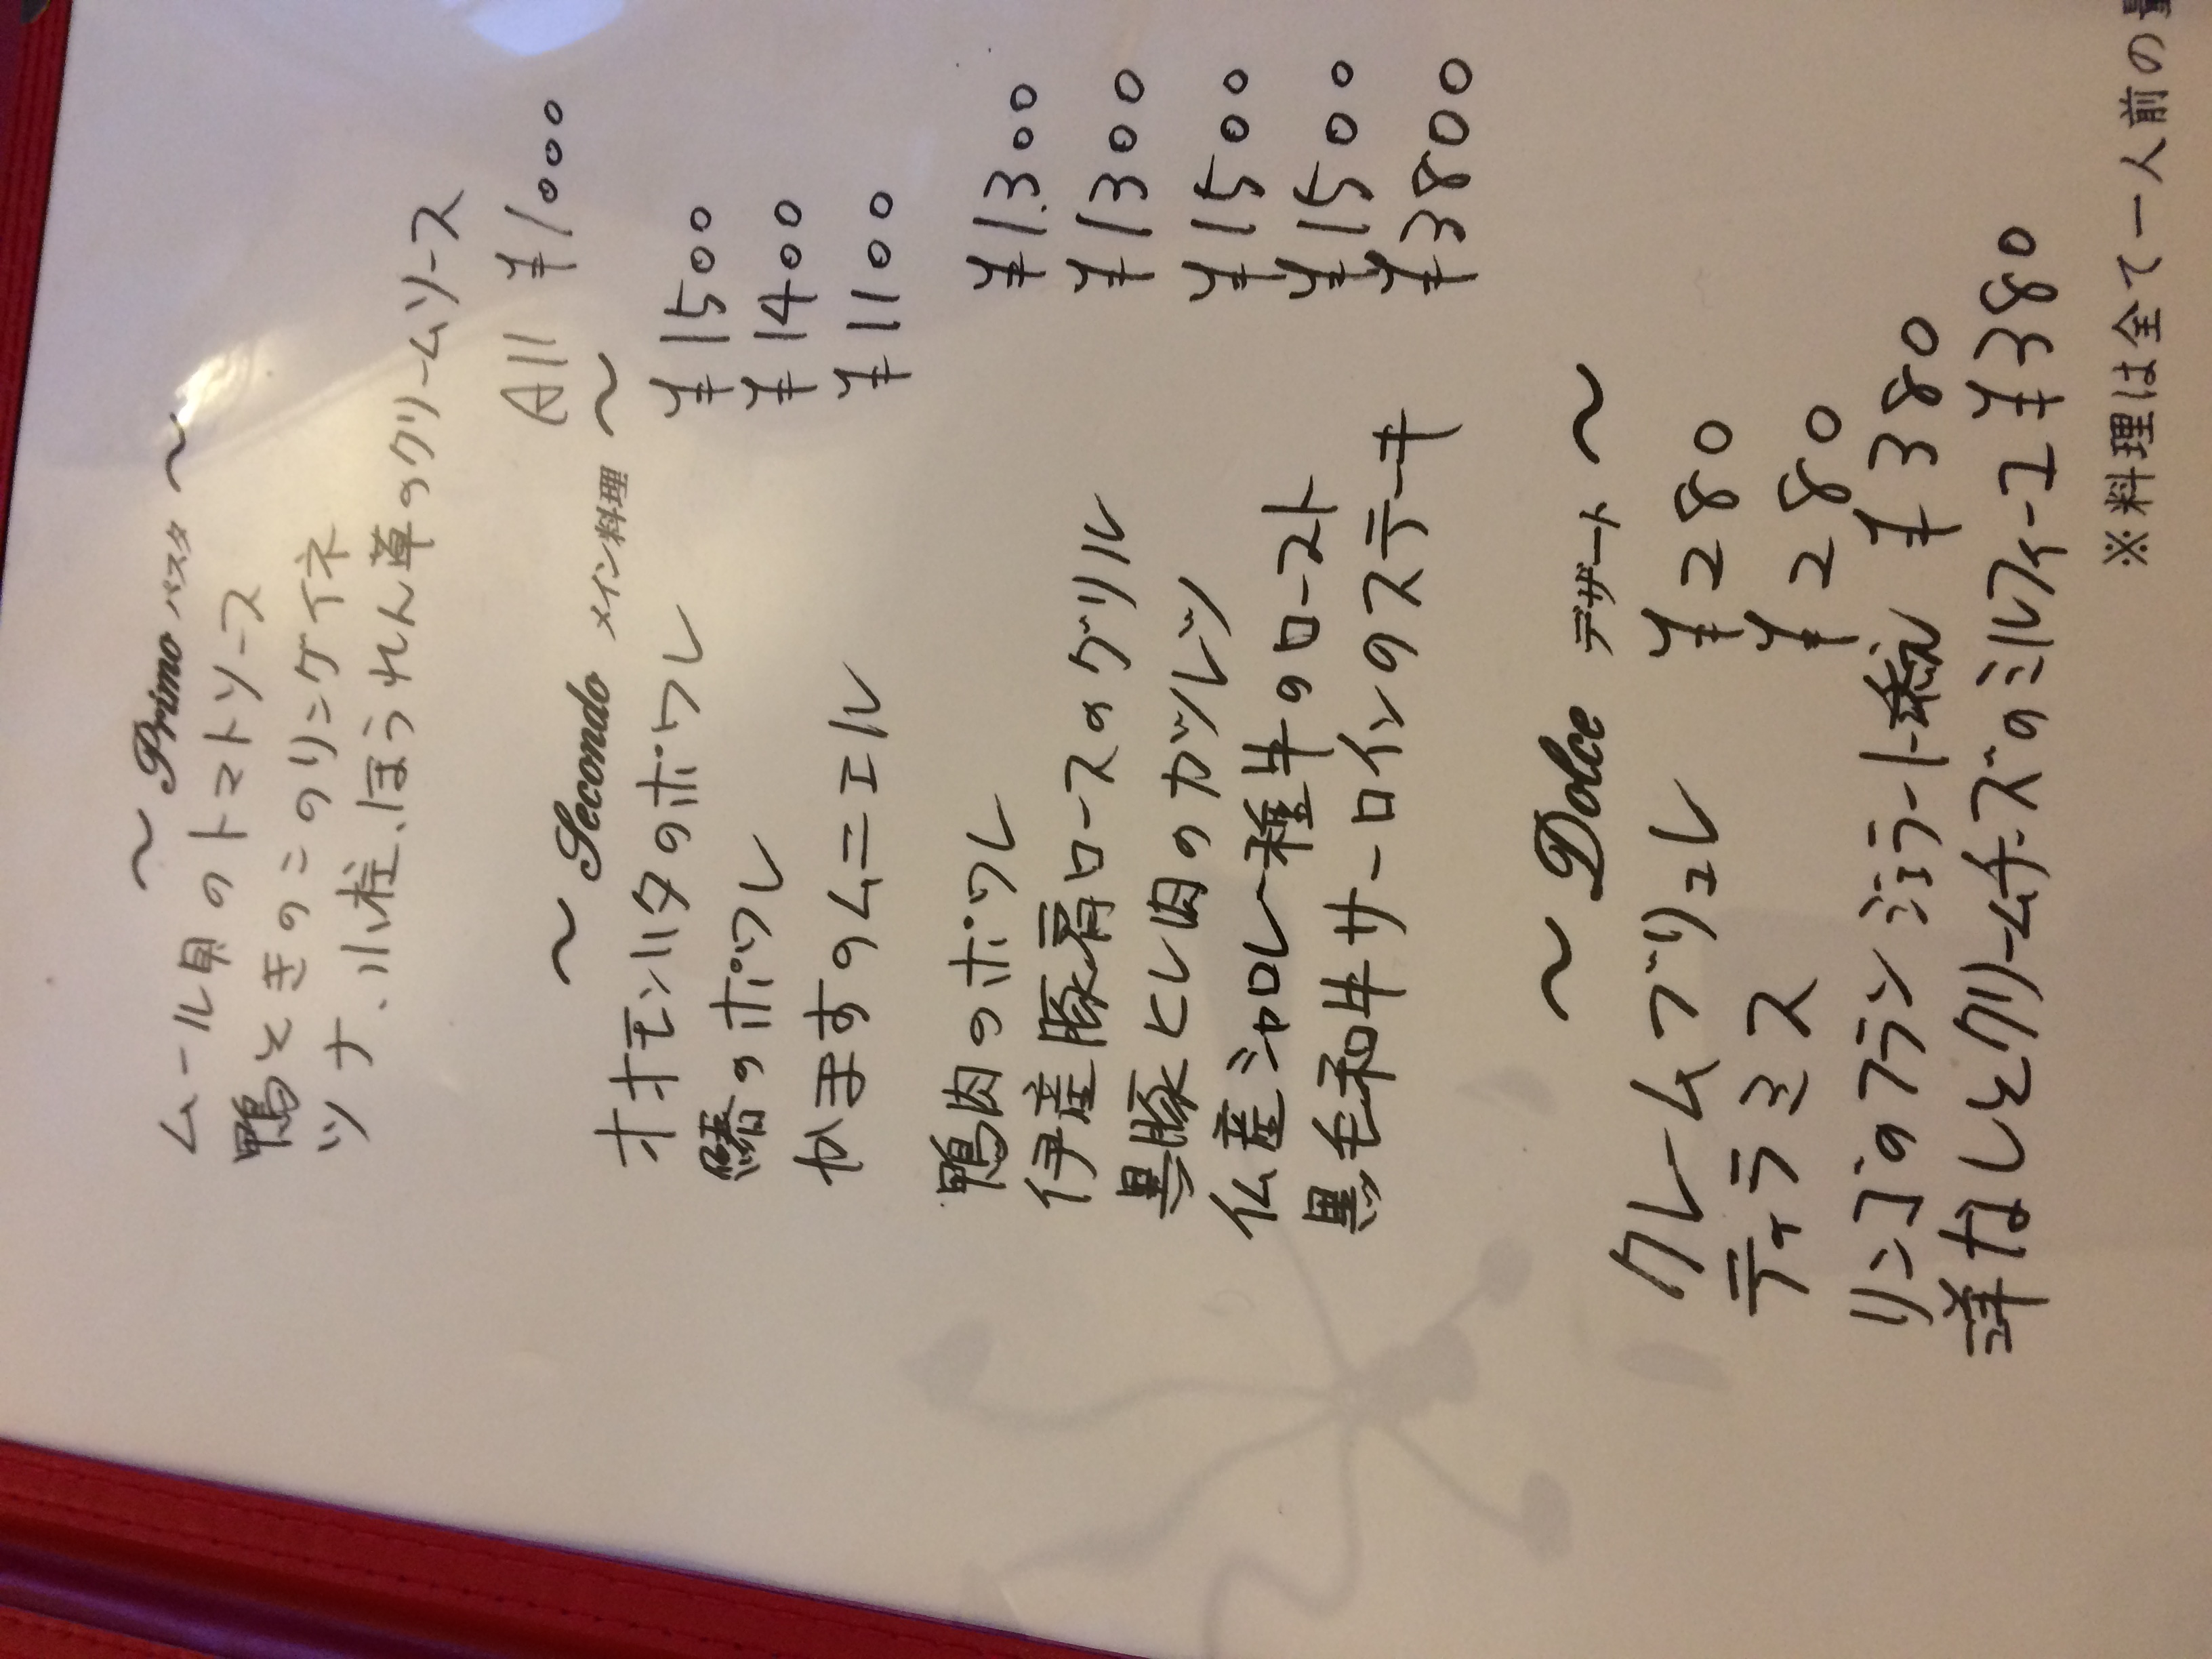 ～ Primo パスタ ～
ムール貝のトマトソース
鴨ときのこのリングイネ
ツナ、小柱、ほうれん草のクリームソース
All ¥1000
～ Secondo メイン料理 ～
オオモンハタのポワレ ¥1500
鰆のポワレ ¥1400
かますのムニエル ¥1100
鴨肉のポワレ ¥1300
伊産豚肩ロースのグリル ¥1300
黒豚ヒレ肉のカツレツ ¥1500
仏産シャロレー種牛のロースト ¥1500
黒毛和牛サーロインのステーキ ¥3800
～ Dolce デザート ～
クレームブリュレ ¥280
ティラミス ¥280
リンゴのフラン ジェラート添え ¥380
洋なしとクリームチーズのミルフィーユ ¥380
※料理は全て一人前の量